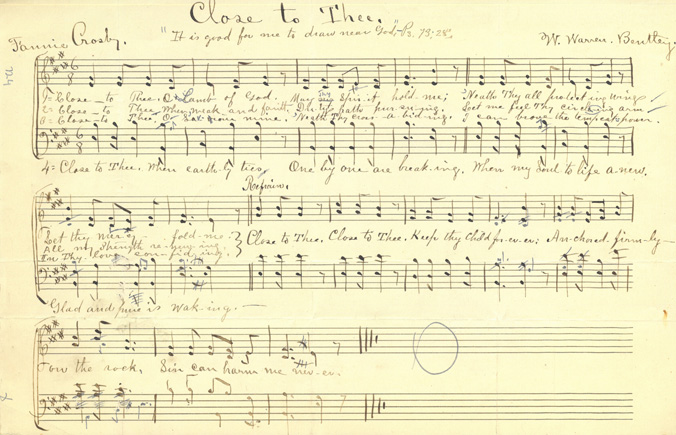 Close to Thee.
"It is good for me to draw near God," Ps. 73; 28,
Fannie Crosby.
W. Warren. Bentley.
6 8
1= Close to Thee, O Lamb of God. May Thy Spirit hold me; 'Neath Thy all protecting wing
2= Close to Thee, when weak and faint, life's path pursuing. Let me feel Thy circling arm
3= Close to Thee, O Saviour mine. 'Neath Thy cross abiding. I can brave the tempest's power.
6 8
4= Close to Thee. When earthly ties, One by one are break-ing. When my soul to life a-new.
Refrain.
Let thy mercy fold me.
All my strength re-new-ing.
In Thy love con-fid-ing.
Close to Thee. Close to Thee. Keep thy child for-ev-er; An-chored firm-ly
Glad and pure is wak-ing.
on the rock, Sin can harm me nev-er.